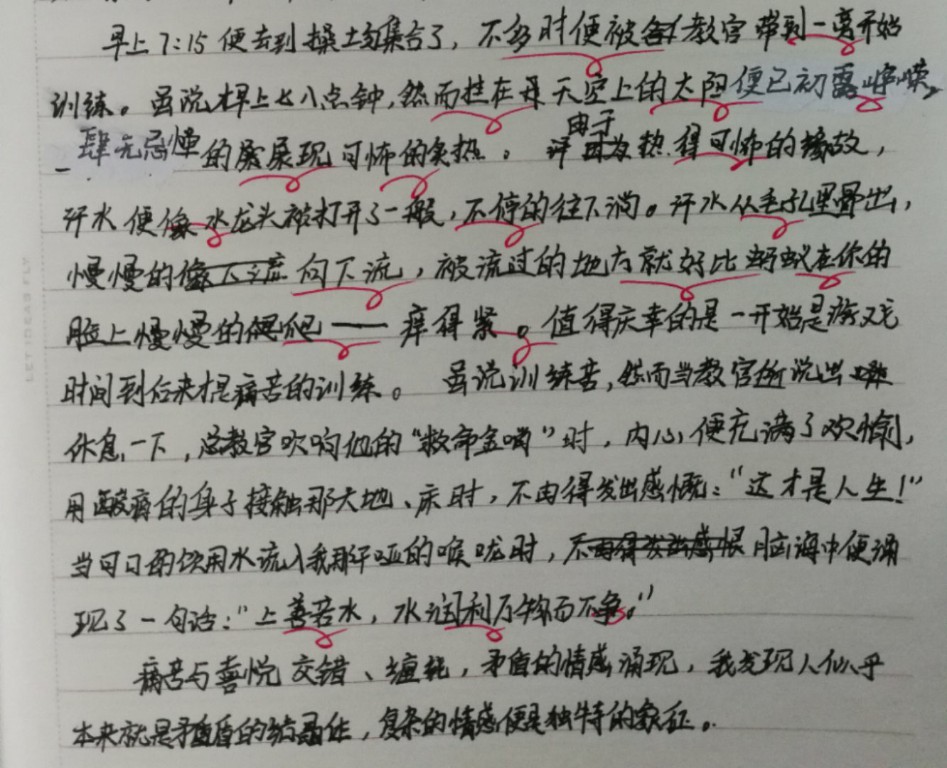 早上7:15便去到操场集合了，不多时便被教官带到一离开始
训练。虽说早上七八点钟，然而挂在天空上的太阳便已初露峥嵘，
肆无忌惮的展现可怖的炎热。由于热得可怖的缘故，
汗水便像水龙头被打开了一般，不停的往下淌。汗水从毛孔里冒出，
慢慢的向下流，被流过的地方就好比蚂蚁在你的
脸上慢慢的爬——痒得紧。值得庆幸的是一开始是
时间到后来才是痛苦的训练。虽说训练苦，然而当教官所说出
休息一下，总教官吹响他的“救命金哨”时，内心便充满了欢愉，
用酸痛的身子接触那大地、床时，不由得发出感慨：“这才是人生！”
当可口的饮用水流入我那干哑的喉咙时，脑海中便涌
现了一句话：“上善若水，水润利万物而不争。”
痛苦与喜悦交错、缠绕，矛盾的情感涌现，我发现人似乎
本来就是矛盾的结晶体，复杂的情感便是独特的象征。